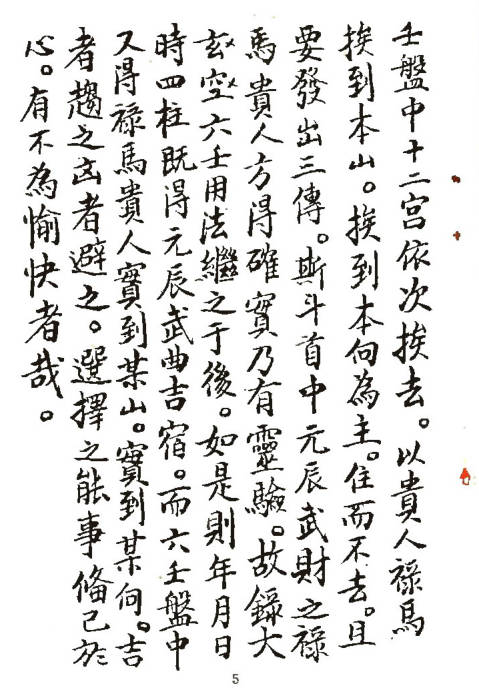 壬盤中十二宮依次挨去。以貴人祿馬
挨到本山。挨到本向為主。住而不去。且
要發出三傳。斯斗首中元辰武財之祿
馬貴人方得確實乃有靈驗。故錄大
玄空六壬用法繼之于後。如是則年月日
時四柱既得元辰武曲吉宿。而六壬盤中
又得祿馬貴人實到某山。實到某向。吉
者趨之凶者避之。選擇之能事俻已於
心。有不為愉快者哉。
5